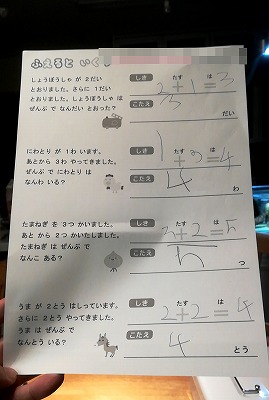 ふえると いく
しょうぼうしゃ が 2だい
とおりました。さらに 1だい
とおりました。しょうぼうしゃ は
ぜんぶ で なんだい とおった？
しき たす は
2+1=3
こたえ 3 だい
にわとり が 1わ います。
あとから 3わ やってきました。
ぜんぶ で にわとり は
なんわ いる？
しき たす は
1+3=4
こたえ 4 わ
たまねぎ を 3つ かいました。
あと から 2つ かいたしました。
たまねぎ は ぜんぶ で
なんこ ある？
しき たす は
3+2=5
こたえ 5 つ
うま が 2とう はしっています。
さらに 2とう やってきました。
うま は ぜんぶ で
なんとう いる？
しき たす は
2+2=4
こたえ 4 とう